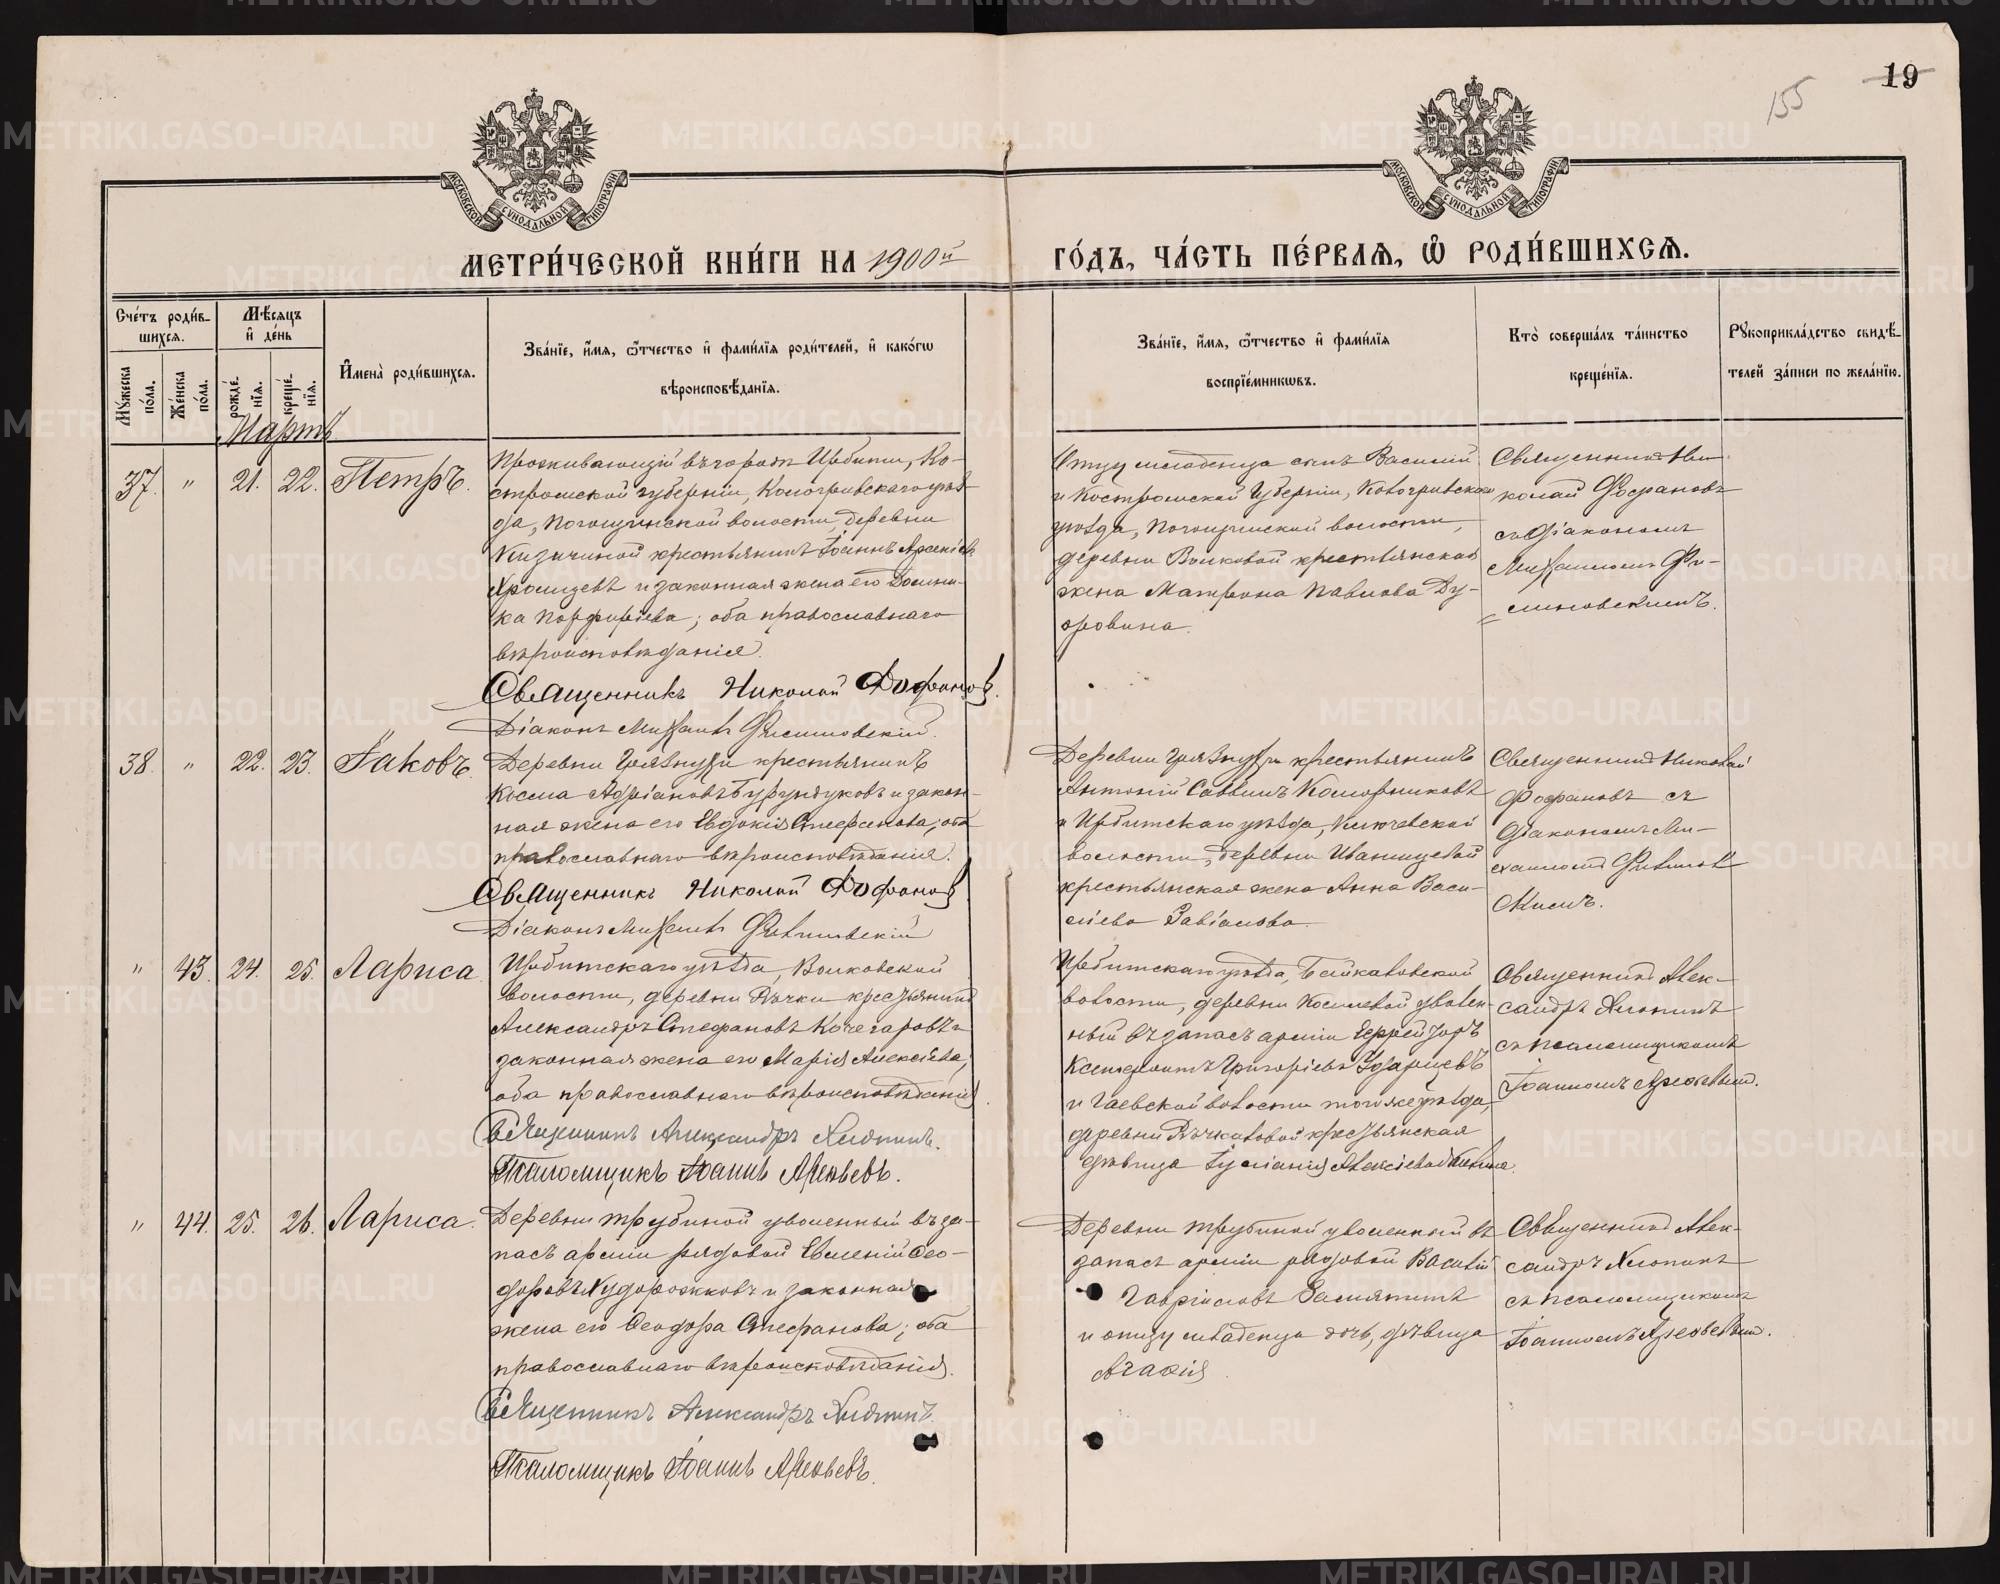 19
155
МОСКОВСКОЙ СУНОДАЛЬНОЙ ТИПОГРАФІИ
МОСКОВСКОЙ СУНОДАЛЬНОЙ ТИПОГРАФІИ
МЕТРИ́ЧЕСКОЙ КНИ́ГИ НА 1900й ГО́ДЪ, ЧА́СТЬ ПЕ́РВАЯ, Ѿ РОДИ́ВШИХСЯ.
Сче́тъ роди́в-
шихся.
Мꙋжеска по́ла.
Же́нска по́ла.
Мѣ́сяцъ и҆ де́нь
рожде́нїя.
креще́нїя.
И҆мена̀ роди́вшихся.
Зва́нїе, и҆́мя, ѻ҆́тчество и҆ фами́лїя роди́телей, и҆ како́гѡ
вѣроисповѣ́данїя.
Зва́нїе, и҆́мя, ѻ҆́тчество и҆ фами́лїя
воспрїе́мникѡвъ.
Кто̀ соверша́лъ та́инство
креще́нїя.
Рꙋкоприкла́дство свидѣ́-
телей за́писи по жела́нїю.
Мартъ
37. " 21. 22. Петръ.
Проживающій въ городѣ Ирбити, Ко-
стромской губерніи, Кологривскаго уѣз-
да, волости, деревни
крестьянинъ Іоаннъ Арсеніевъ
и законная жена его Домни-
ка Порфиріева; оба православнаго
вѣроисповѣданія.
Священникъ Николай Фофановъ.
Діаконъ Михаилъ
Отцу младенца сынъ Василій
и Костромской губерніи, Кологривскаго
уѣзда, волости,
деревни Волковой крестьянская
жена Матрона Павлова Ду-
оровина.
Священникъ Ни-
колай Фофановъ
съ діакономъ
Михаиломъ Фи-
линовскимъ.
38. " 22. 23. Іаковъ.
Деревни Грязнухи крестьянинъ
Косма Адріановъ Бурундуковъ и закон-
ная жена его Евдокія Стефанова; оба
православнаго вѣроисповѣданія.
Священникъ Николай Фофановъ
Діаконъ Михаилъ
Деревни Грязнухи крестьянинъ
Антоній Саввинъ Коморниковъ
и Ирбитскаго уѣзда, Ключевской
волости, деревни Иванищевой
крестьянская жена Анна Васи-
ліева Завіалова.
Священникъ Николай
Фофановъ съ
діакономъ Ми-
хаиломъ Филинов
скимъ.
" 43. 24. 25. Лариса
Ирбитскаго уѣзда, Волковской
волости, деревни Рѣчки крестьянинъ
Александръ Стефановъ Кочегаровъ и
законная жена его Марія Алексіева;
оба православнаго вѣроисповѣданія.
Священникъ Александръ Хлопинъ.
Псаломщикъ Іоаннъ Арефьевъ.
Ирбитскаго уѣзда, Байкаловской
волости, деревни уволен-
ный въ запасъ арміи Ефрейторъ
Ксенофонтъ Григоріевъ Ударцевъ
и Гаевской волости того же уѣзда,
деревни Рѣчкаловой крестьянская
дѣвица Іуліанія Алексіева
Священникъ Алек-
сандръ Хлопинъ
съ псаломщикомъ
Іоанномъ Арефьевым.
" 44. 25. 26. Лариса.
Деревни Трубиной уволенный въ за-
пасъ арміи рядовой Евменій Ѳео-
доровъ Худорожковъ и законная
жена его Ѳеодора Стефанова; оба
православнаго вѣроисповѣданія.
Священникъ Александръ Хлопинъ.
Псаломщикъ Іоаннъ Арефьевъ.
Деревни Трубиной уволенный въ
запасъ арміи рядовой Василій
Гавріиловъ Замятинъ
и отцу младенца дочь, дѣвица
Агафія
Священникъ Алек-
сандръ Хлопинъ
съ псаломщикомъ
Іоанномъ Арефьевым.